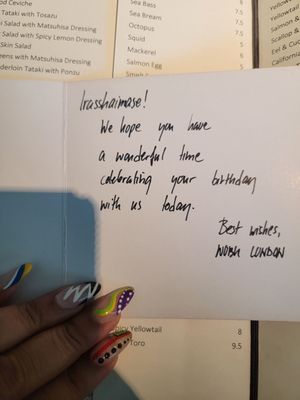 od Ceviche
Tataki with Tosazu
i Salad with Matsuhisa Dressing
Salad with Spicy Lemon Dressing
Skin Salad
eens with Matsuhisa Dressing
derloin Tataki with Ponzu
Sea Bass 7.5
Sea Bream 7.5
Octopus 5
Squid 5
Mackerel
Salmon Egg
Smelt Egg
Yellowtail
Salmon
Scallop &
Eel & Cu
California
Irasshaimase!
We hope you have
a wonderful time
celebrating your birthday
with us today.
Best wishes,
NOBU LONDON
Spicy Yellowtail 8
Toro 9.5